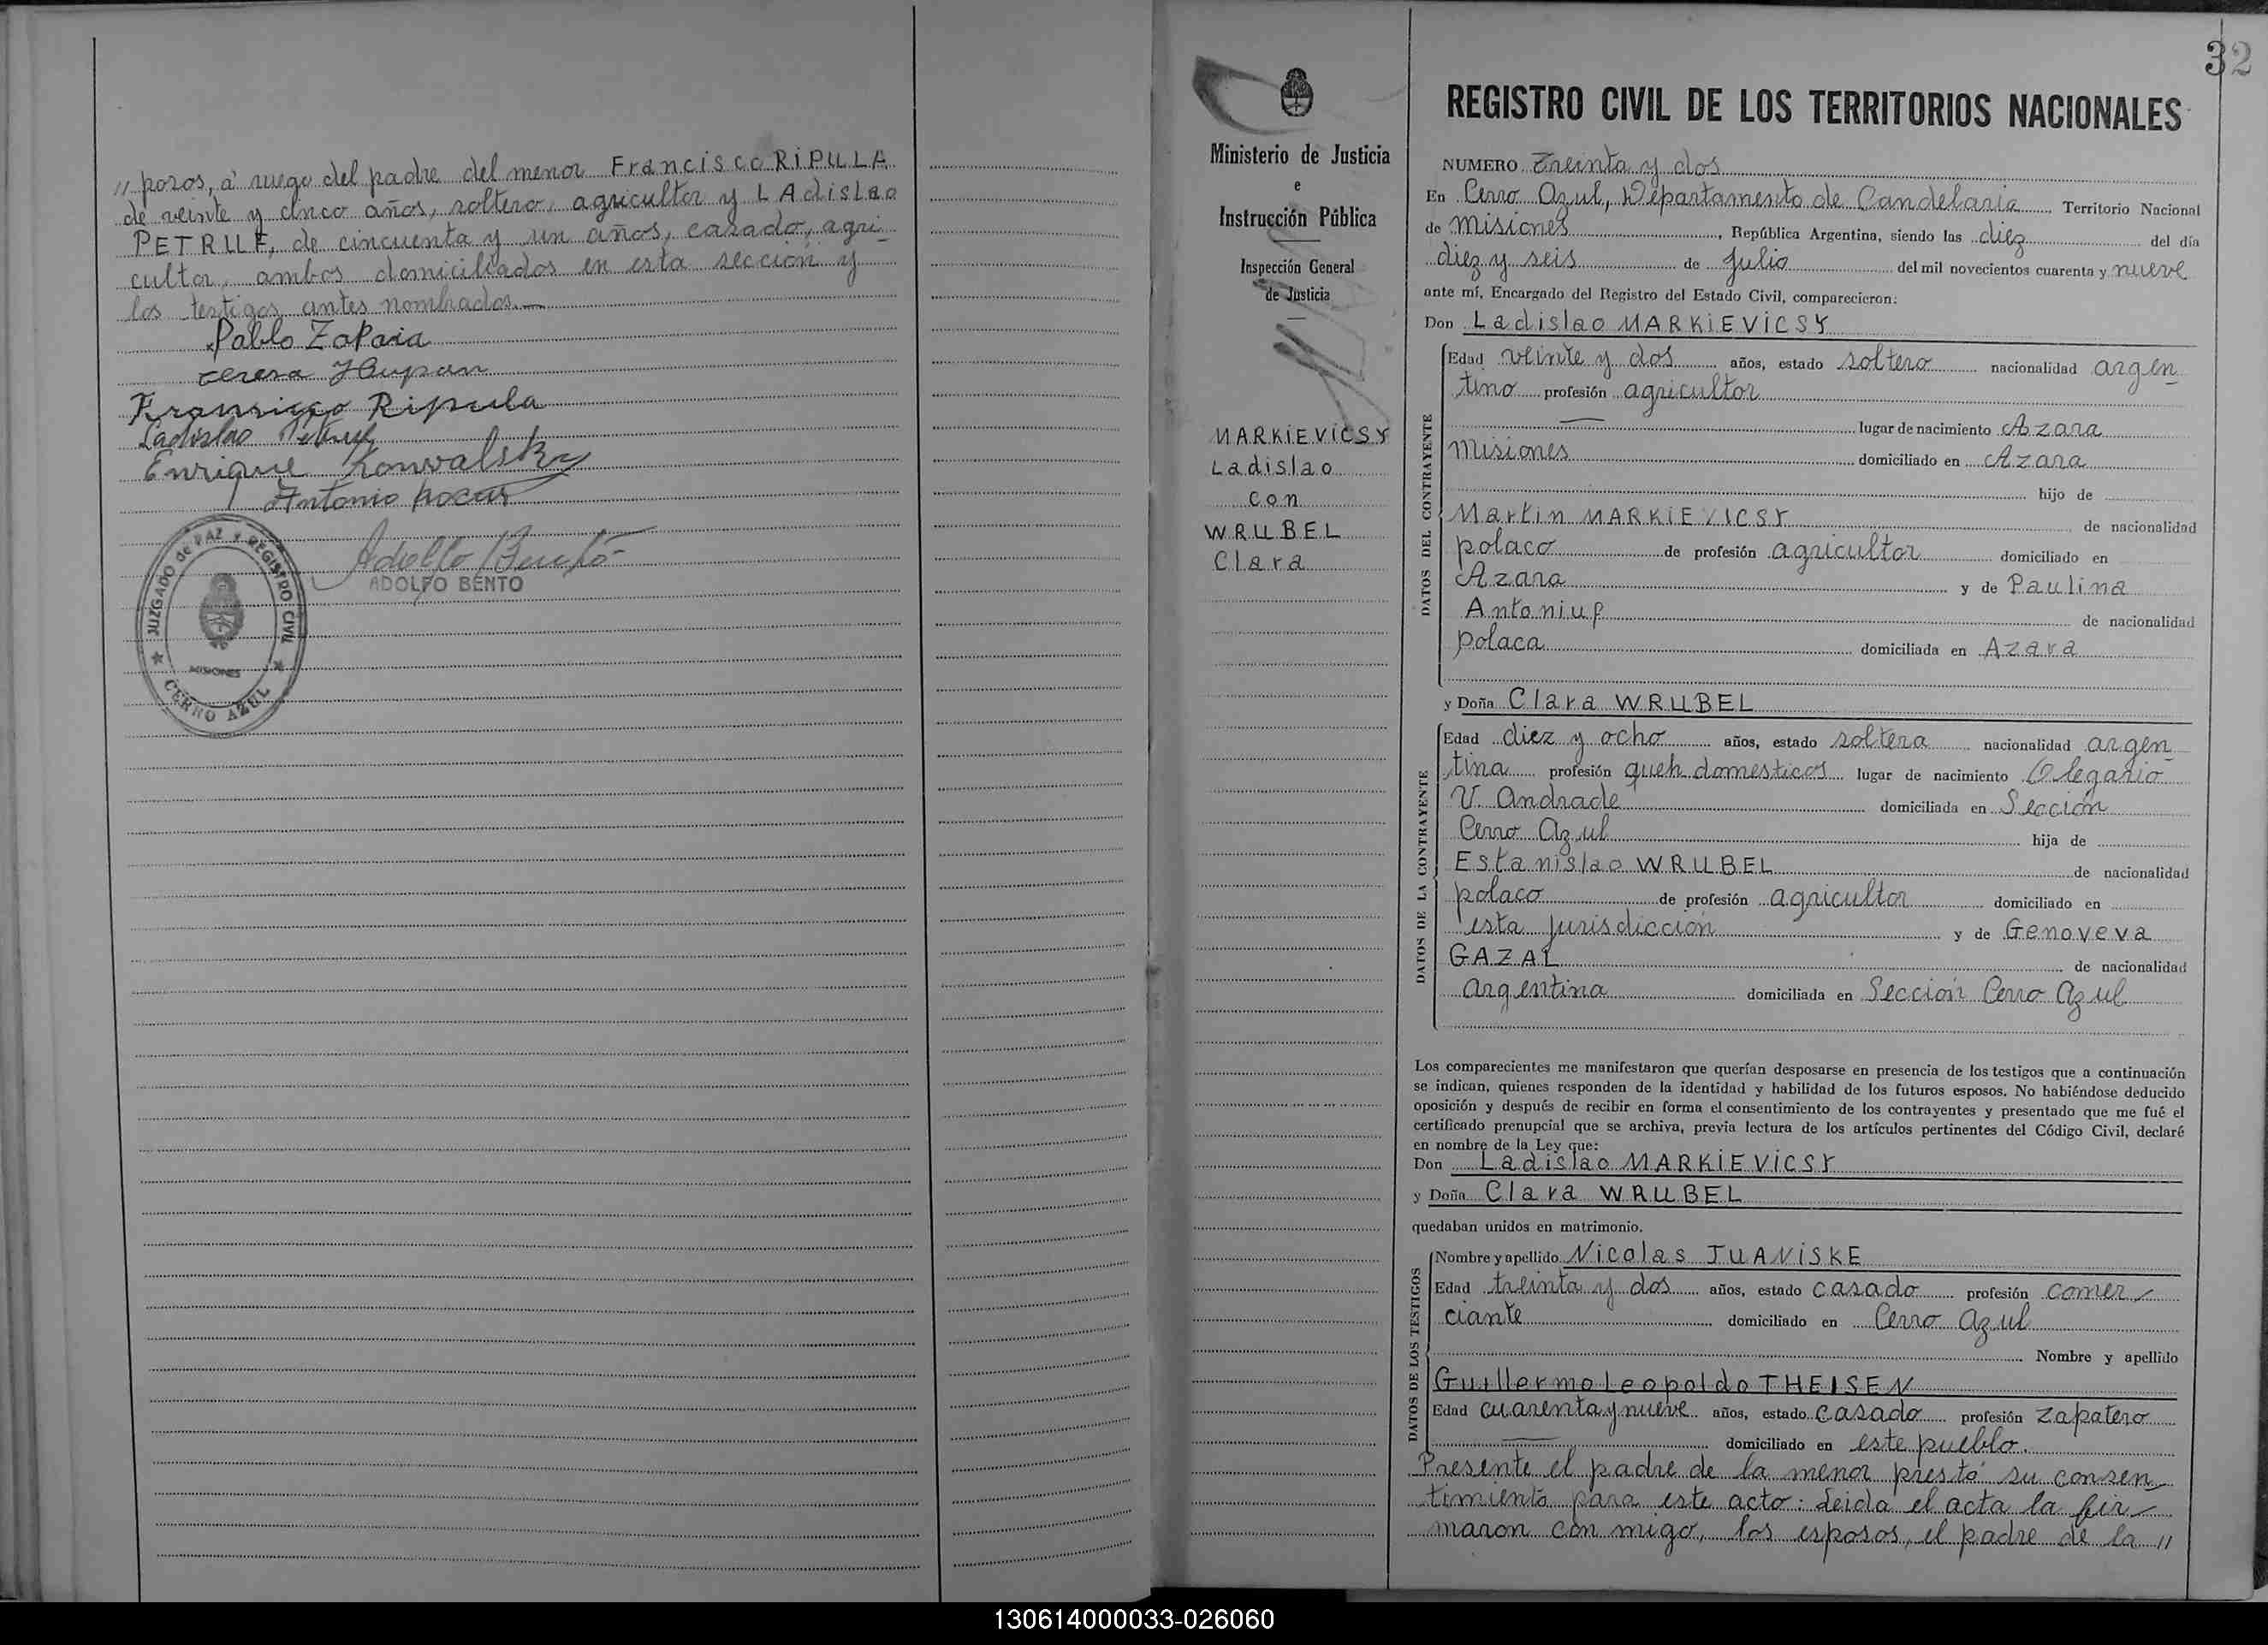 " posos, a' ruego del padre del menor Francisco RiPULLA
de veinte y cinco años, soltero, agricultor y LAdislao
PETRUF, de cincuenta y un años, casado, agri-
cultor, ambos domiciliados en esta sección y
los testigos antes nombrados.—
Pablo
teresa
Ripula
Ladislao
Enrique Konwalsky
Antonio
ADOLFO BENTO
JUZGADO de PAZ Y REGISTRO CIVIL
MISIONES
CERRO AZUL
32
Ministerio de Justicia
e
Instrucción Pública
Inspección General
de Justicia
MARKiEViCSY
Ladislao
con
WRUBEL
Clara
REGISTRO CIVIL DE LOS TERRITORIOS NACIONALES
NUMERO Treinta y dos
En Cerro Azul, Departamento de Candelaria Territorio Nacional
de Misiones, República Argentina, siendo las diez del día
diez y seis de Julio del mil novecientos cuarenta y nueve
ante mí, Encargado del Registro del Estado Civil, comparecieron:
Don Ladislao MARKiEViCSY
DATOS DEL CONTRAYENTE
Edad veinte y dos años, estado soltero nacionalidad argen-
tino profesión agricultor
— lugar de nacimiento Azara
Misiones domiciliado en Azara
hijo de
Martin MARKiEViCSY de nacionalidad
polaco de profesión agricultor domiciliado en
Azara y de Paulina
Antoniuf de nacionalidad
polaca domiciliada en Azara
y Doña Clara WRUBEL
DATOS DE LA CONTRAYENTE
Edad diez y ocho años, estado soltera nacionalidad argen-
tina profesión queh. domesticos lugar de nacimiento Olegario
V. Andrade domiciliada en Sección
Cerro Azul hija de
Estanislao WRUBEL de nacionalidad
polaco de profesión agricultor domiciliado en
esta jurisdicción y de Genoveva
GAZAL de nacionalidad
argentina domiciliada en Sección Cerro Azul
Los comparecientes me manifestaron que querían desposarse en presencia de los testigos que a continuación
se indican, quienes responden de la identidad y habilidad de los futuros esposos. No habiéndose deducido
oposición y después de recibir en forma el consentimiento de los contrayentes y presentado que me fué el
certificado prenupcial que se archiva, previa lectura de los artículos pertinentes del Código Civil, declaré
en nombre de la Ley que:
Don Ladislao MARKiEViCSY
y Doña Clara WRUBEL
quedaban unidos en matrimonio.
DATOS DE LOS TESTIGOS
Nombre y apellido Nicolas JUANiSKE
Edad treinta y dos años, estado casado profesión comer-
ciante domiciliado en Cerro Azul
Nombre y apellido
Guillermo Leopoldo THEISEN
Edad cuarenta y nueve años, estado casado profesión zapatero
— domiciliado en este pueblo.
Presente el padre de la menor prestó su consen-
timiento para este acto: Leida el acta la fir-
maron con migo, los esposos, el padre de la "
130614000033-026060